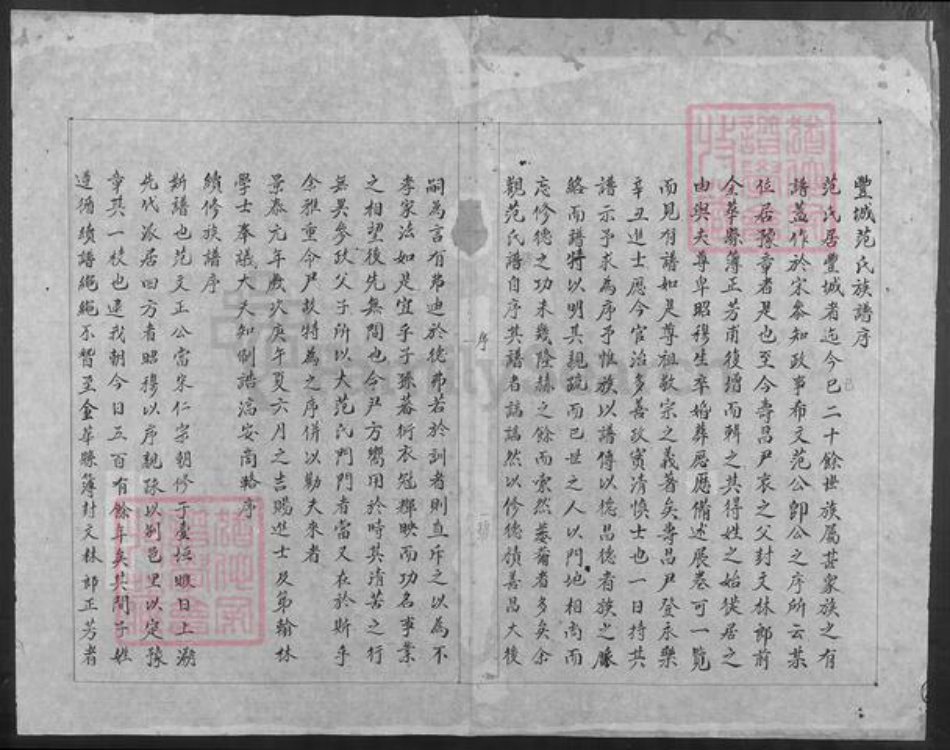 豐城范氏族譜序
范氏居豐城者迄今已二十餘世族屬甚衆族之有
譜蓋作於宋參知政事希文范公卽公之序所云某
位居豫章者是也至今壽昌尹衷之父封文林郎前
金華縣簿正芳甫復增而輯之其得姓之始徙居之
由與夫尊卑昭穆生卒婚葬歷歷備述展卷可一覧
而見有譜如是尊祖敬宗之義著矣壽昌尹登永樂
辛丑進士歷今官治多善政寅清慎士也一日持其
譜示予求為序予惟族以譜傳以德昌德者族之脈
絡而譜特以明其親疏而已世之人以門地相尚而
忘修德之功未幾隆赫之餘而索然萎薾者多矣余
觀范氏譜自序其譜者諄諄然以修德積善昌大後
嗣為言有弗迪於德弗若於訓者則直斥之以為不
孝家法如是宜乎子孫蕃衍衣冠輝映而功名事業
之相望後先無間也令尹方嚮用於時其清苦之行
無異參政父子所以大范氏門閭者當又在於斯乎
余雅重令尹故特為之序併以勖夫來者
景泰元年歲次庚午夏六月之吉賜進士及第翰林
學士奉議大夫知制誥淳安商輅序
續修族譜序
斯譜也范文正公當宋仁宗朝修于慶垣暇日上溯
先代派居四方者昭穆以序親疎以別邑里以定豫
章其一枝也逮我朝今日五百有餘年矣其間子姓
遵循續譜繩繩不替至金華縣簿封文林郎正芳者
序